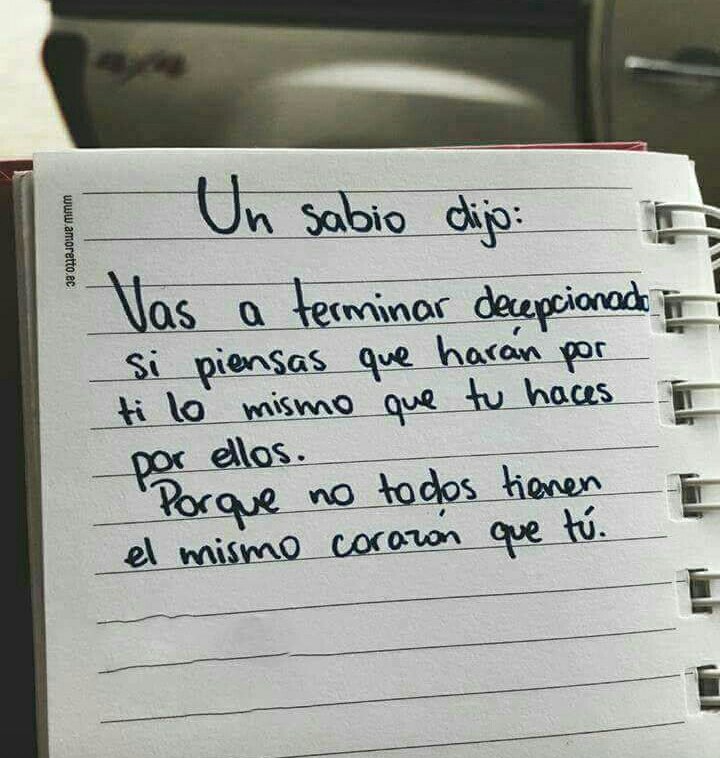 Un sabio dijo:
Vas a terminar decepcionado
si piensas que harán por
ti lo mismo que tu haces
por ellos.
Porque no todos tienen
el mismo corazón que tú.
www.amoretto.ec